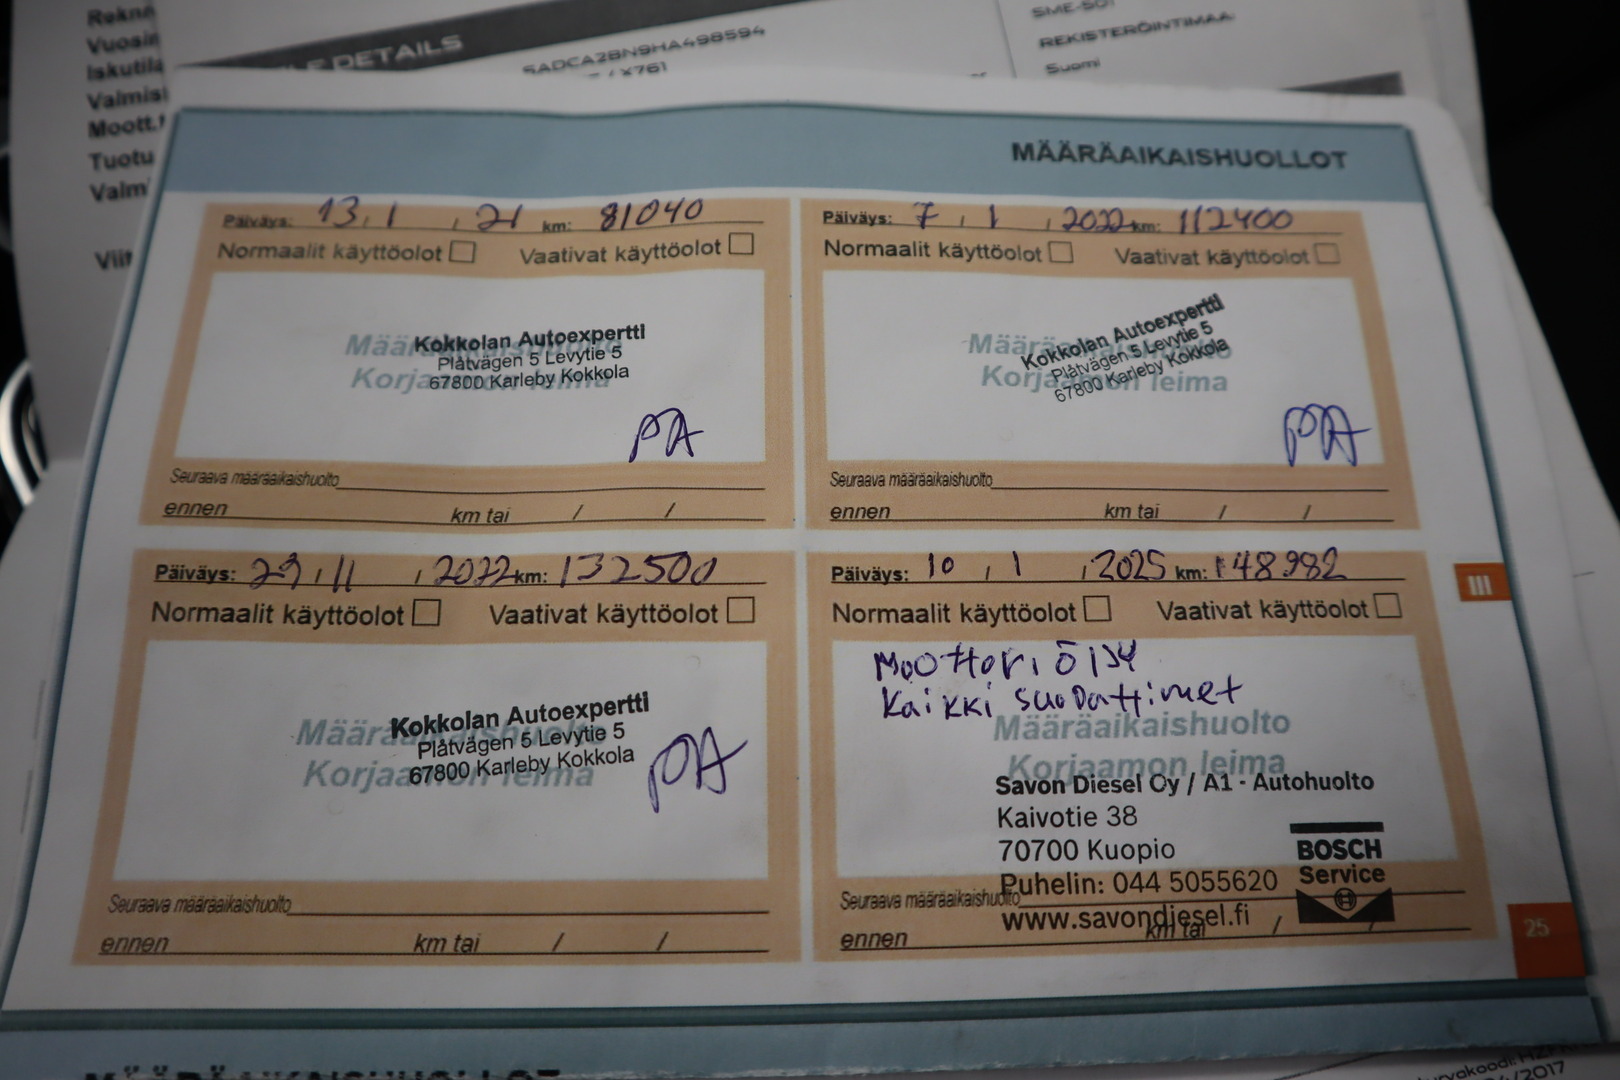 Vuosim
Iskutila
Valmist
Moott.t
Tuotu
Valm
Viit
LE DETAILS
SADCA2BN9HA498594
/ X761
SME-501
REKISTERÖINTIMAA:
Suomi
MÄÄRÄAIKAISHUOLLOT
Päiväys: 13 / 1 / 21 km: 81040
Normaalit käyttöolot Vaativat käyttöolot
Määräaikaishuolto
Korjaamon leima
Kokkolan Autoexpertti
Plåtvägen 5 Levytie 5
67800 Karleby Kokkola
PA
Seuraava määräaikaishuolto
ennen km tai / /
Päiväys: 7 / 1 / 2022 km: 112400
Normaalit käyttöolot Vaativat käyttöolot
Määräaikaishuolto
Korjaamon leima
Kokkolan Autoexpertti
Plåtvägen 5 Levytie 5
67800 Karleby Kokkola
PA
Seuraava määräaikaishuolto
ennen km tai / /
Päiväys: 29 / 11 / 2022 km: 132500
Normaalit käyttöolot Vaativat käyttöolot
Määräaikaishuolto
Korjaamon leima
Kokkolan Autoexpertti
Plåtvägen 5 Levytie 5
67800 Karleby Kokkola
PA
Seuraava määräaikaishuolto
ennen km tai / /
Päiväys: 10 / 1 / 2025 km: 148982
Normaalit käyttöolot Vaativat käyttöolot
Moottori öljy
Kaikki suodattimet
Määräaikaishuolto
Korjaamon leima
Savon Diesel Oy / A1 - Autohuolto
Kaivotie 38
70700 Kuopio
Puhelin: 044 5055620
www.savondiesel.fi
BOSCH
Service
Seuraava määräaikaishuolto
ennen km tai / /
III
25
MÄÄRÄAIKAISHUOLLOT
/2017